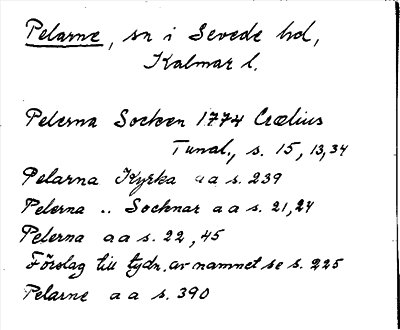 Pelarne, sn i Sevede hd,
Kalmar l.
Pelerna Socken 1774 Crælius
Tunal., s. 15, 13, 34
Pelarna Kyrka a a s. 239
Pelerna .. Socknar a a s. 21, 24
Pelerna a a s. 22, 45
Förslag till tydn. av namnet se s. 225
Pelarne a a s. 390